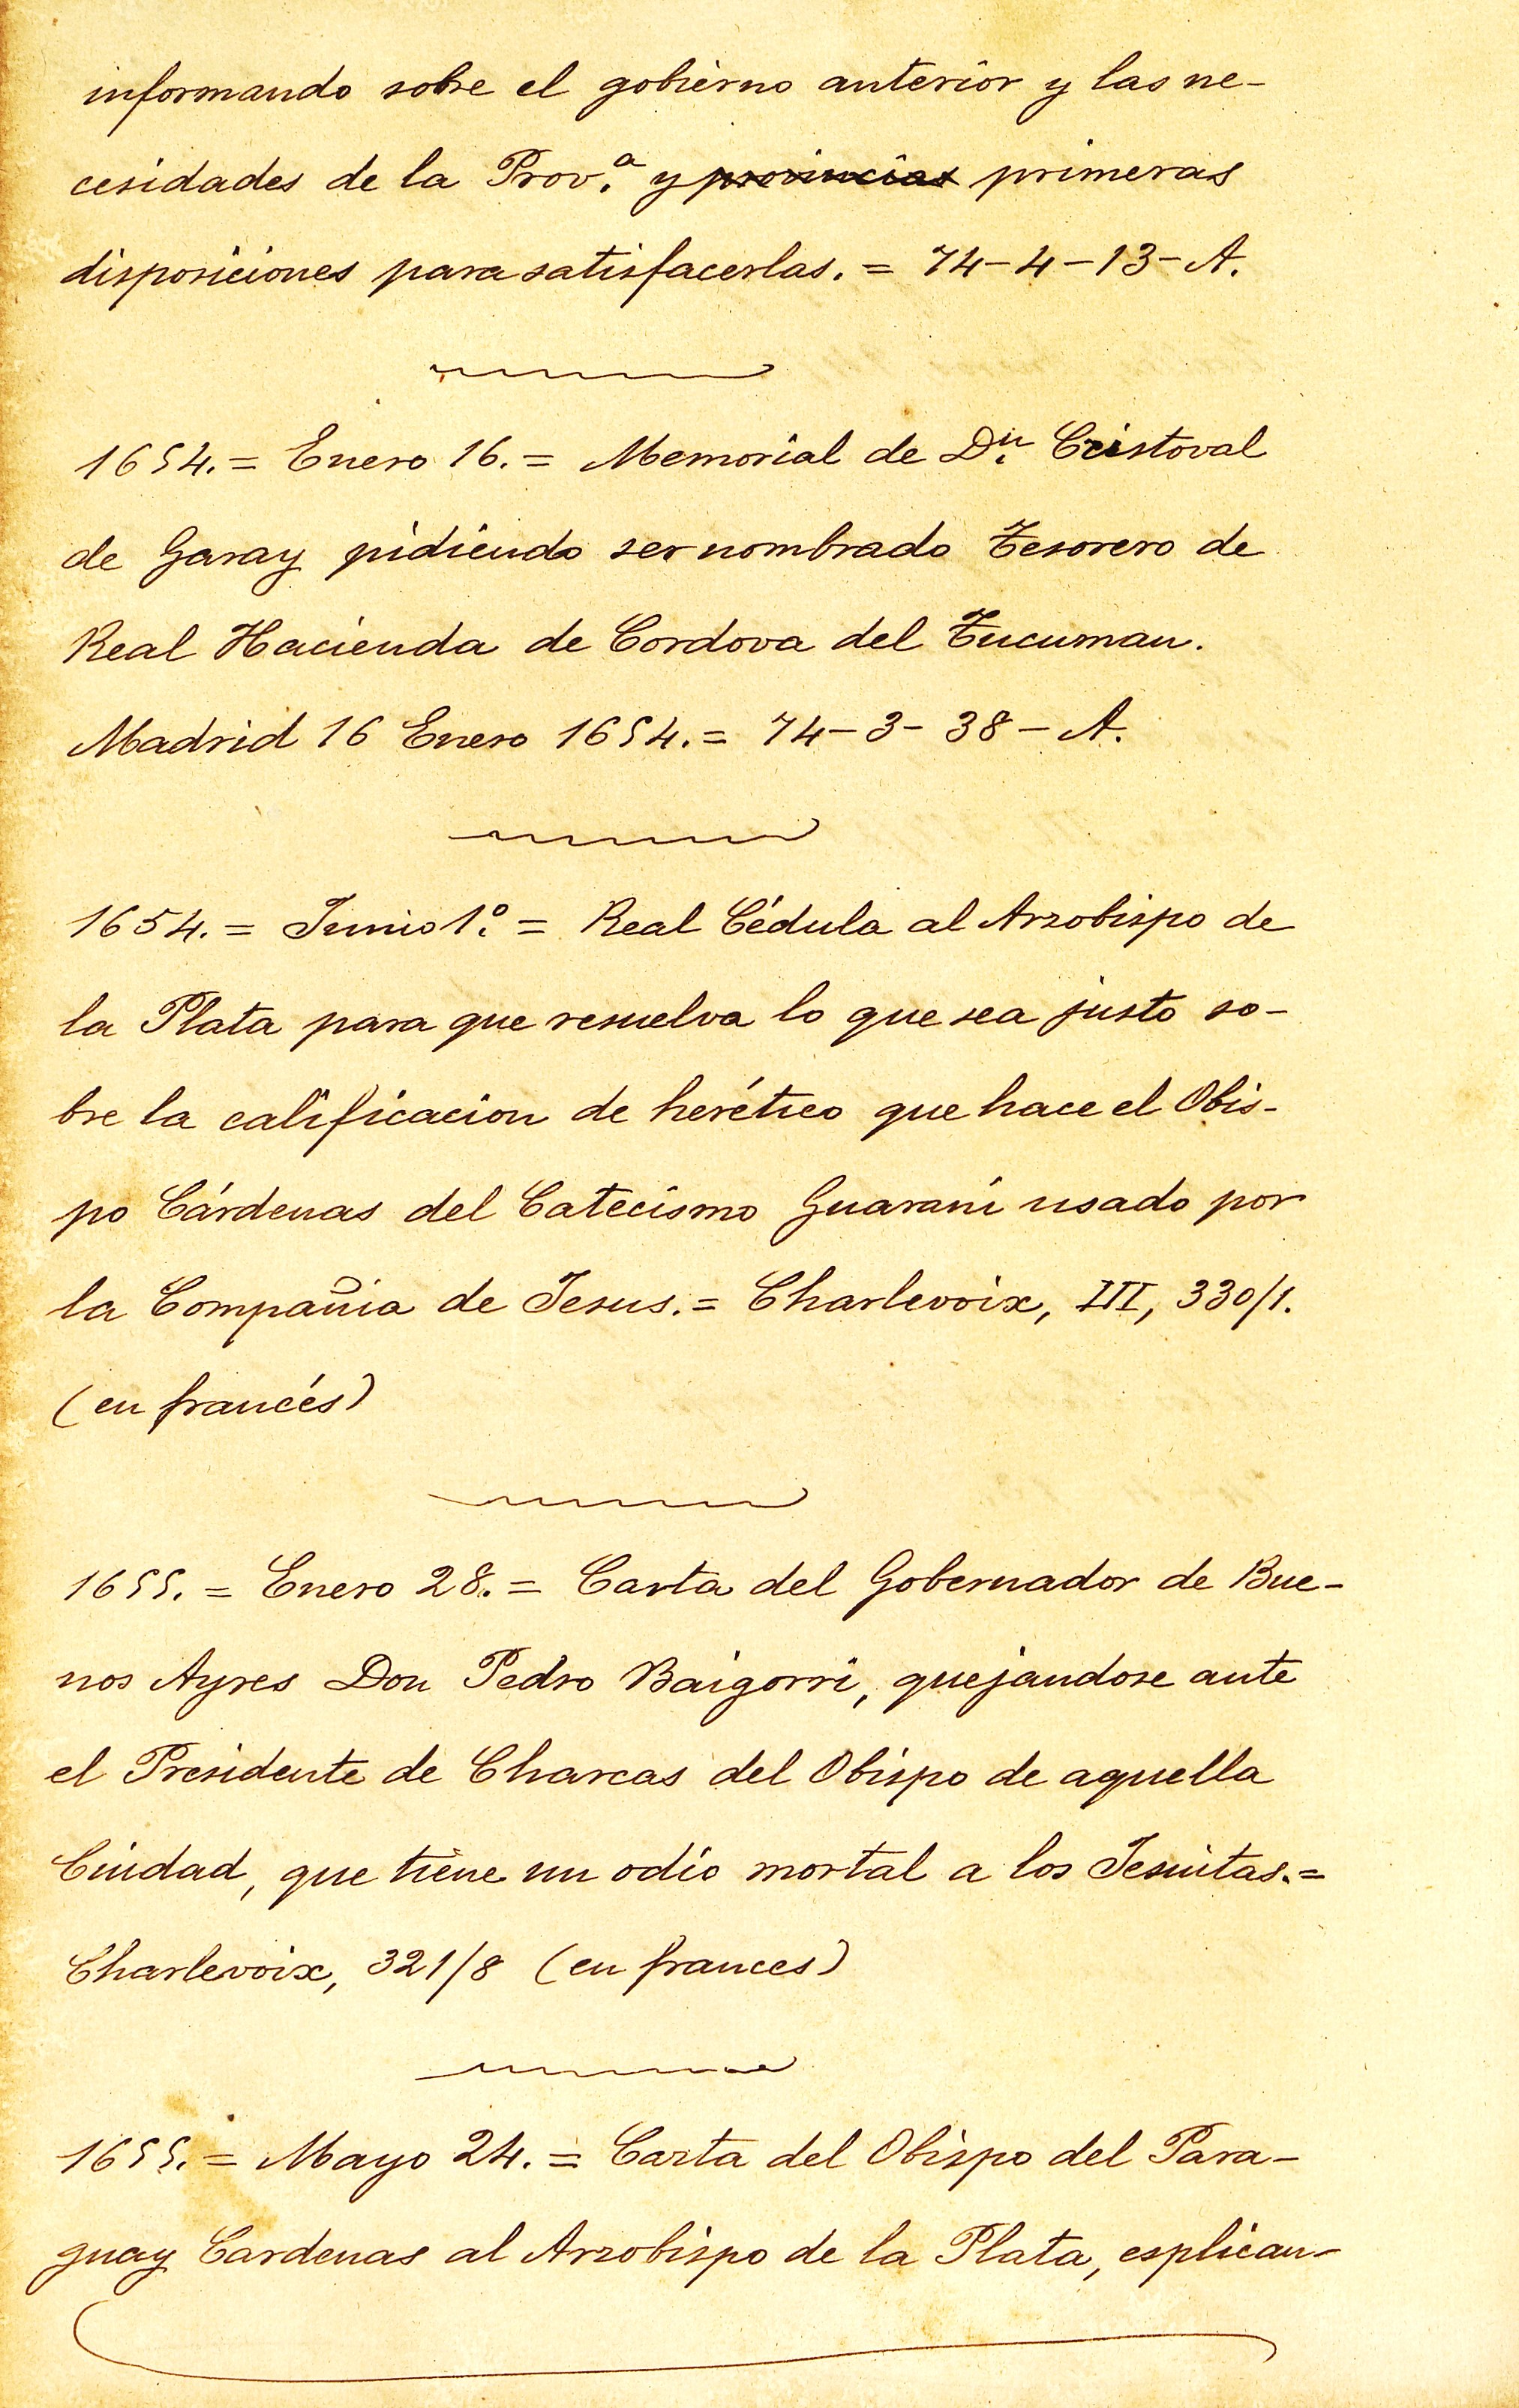 informando sobre el gobierno anterior y las ne-
cesidades de la Prov.ª y provincias primeras
disposiciones para satisfacerlas. = 74-4-13-A.
1654. = Enero 16. = Memorial de Dn. Cristoval
de Garay pidiendo ser nombrado Tesorero de
Real Hacienda de Cordova del Tucuman.
Madrid 16 Enero 1654. = 74-3-38-A.
1654. = Junio 1.º = Real Cédula al Arzobispo de
la Plata para que resuelva lo que sea justo so-
bre la calificacion de herético que hace el Obis-
po Cárdenas del Catecismo Guarani usado por
la Compañia de Jesus. = Charlevoix, III, 330/1.
(en francés)
1655. = Enero 28. = Carta del Gobernador de Bue-
nos Ayres Don Pedro Baigorri, quejandose ante
el Presidente de Charcas del Obispo de aquella
Ciudad, que tiene un odio mortal a los Jesuitas. =
Charlevoix, 321/8 (en frances)
1655. = Mayo 24. = Carta del Obispo del Para-
guay Cardenas al Arzobispo de la Plata, esplican-